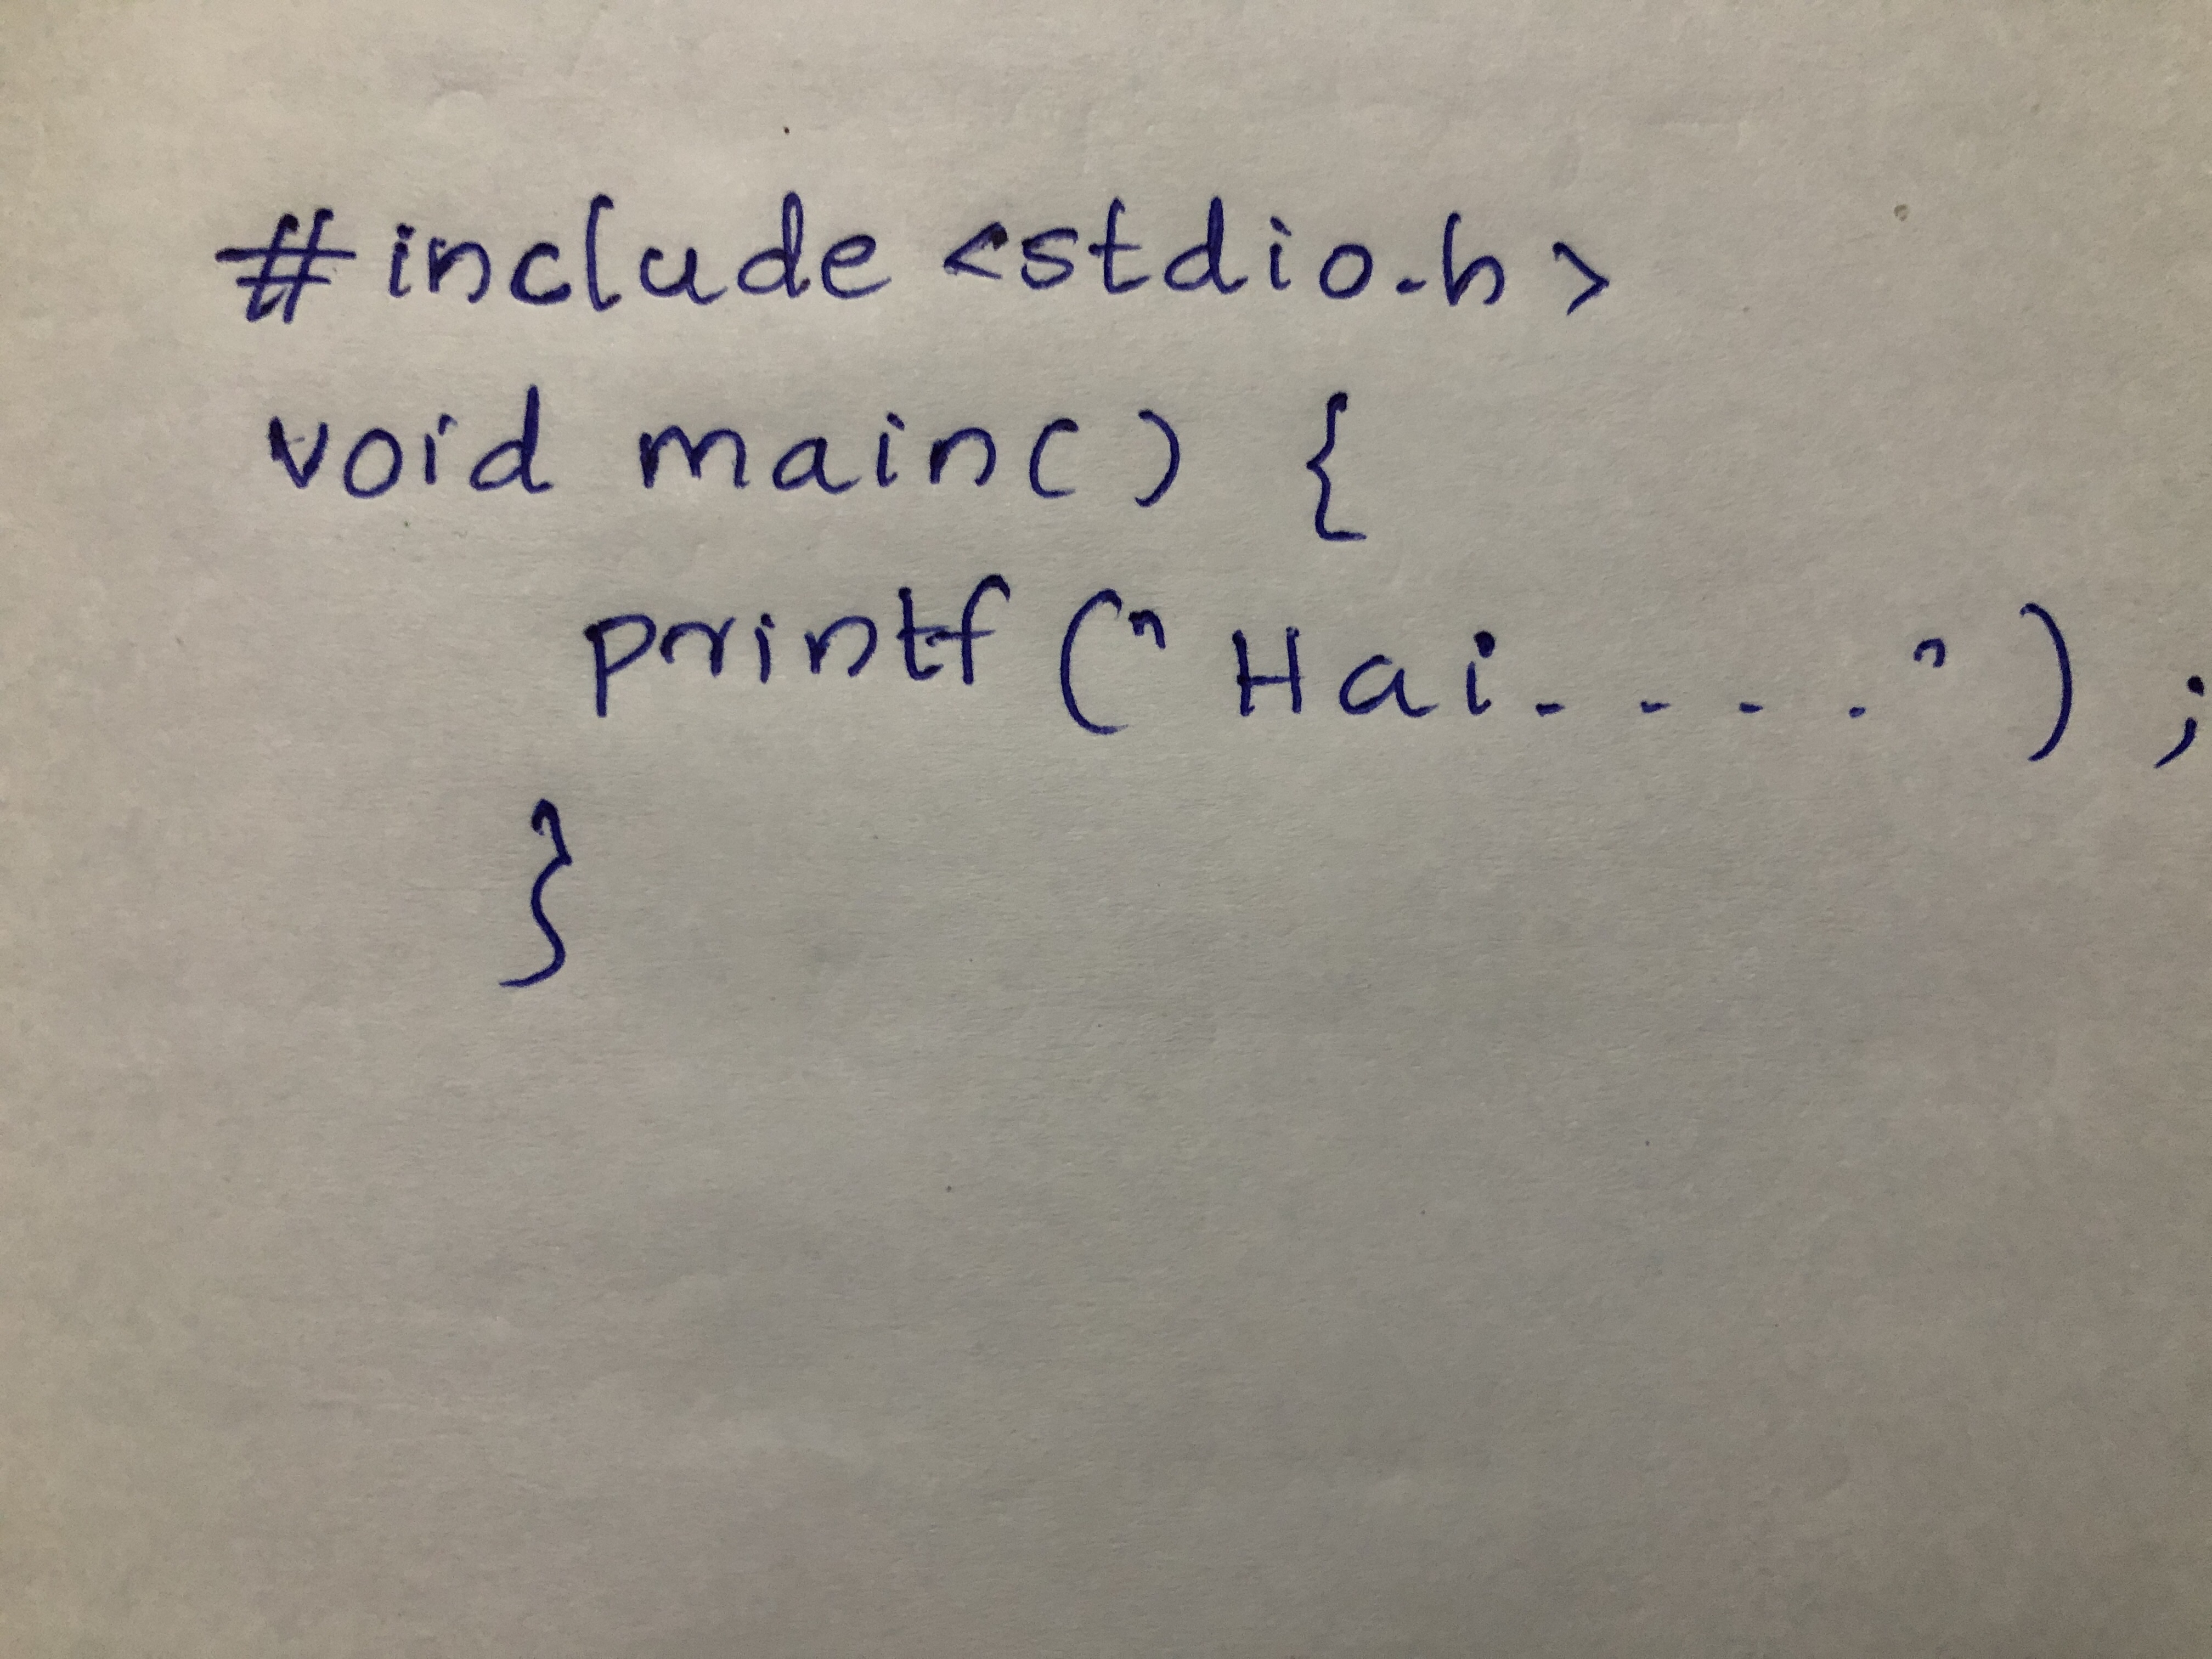 #include <stdio.h>
void main() {
printf ("Hai....");
}